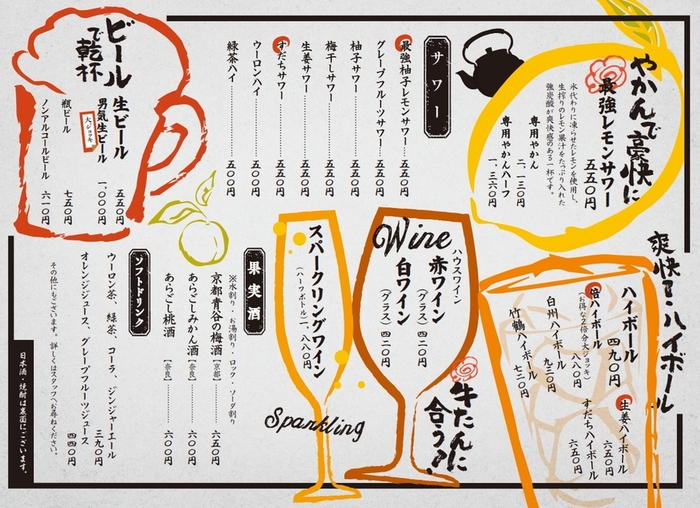 やかんで豪快に
最強レモンサワー
五五〇円
氷代わりに凍らせたレモンを使用し、
生搾りのレモン果汁をたっぷり入れた
強炭酸が爽快感のある一杯です。
専用やかん
二、一三〇円
専用やかんハーフ
一、三六〇円
サワー
最強柚子レモンサワー……五五〇円
グレープフルーツサワー……五五〇円
柚子サワー……五五〇円
梅干しサワー……五五〇円
生姜サワー……五五〇円
すだちサワー……五五〇円
ウーロンハイ……五〇〇円
緑茶ハイ……五〇〇円
ビールで乾杯
生ビール
五五〇円
男気生ビール
大ジョッキ
一、〇〇〇円
瓶ビール
七五〇円
ノンアルコールビール
六一〇円
爽快！ハイボール
ハイボール
四九〇円
生姜ハイボール
六五〇円
倍ハイボール
（お得な２倍分大ジョッキ）
八八〇円
すだちハイボール
六五〇円
白州ハイボール
九二〇円
竹鶴ハイボール
七二〇円
Wine
ハウスワイン
赤ワイン
（グラス）四二〇円
白ワイン
（グラス）四二〇円
牛たんに合う！
スパークリングワイン
（ハーフボトル）二、八八〇円
Sparkling
果実酒
※水割り・お湯割り・ロック・ソーダ割り
京都青谷の梅酒【京都】……六五〇円
あらごしみかん酒【奈良】……六〇〇円
あらごし桃酒【奈良】……六〇〇円
ソフトドリンク
ウーロン茶、緑茶、コーラ、ジンジャーエール
三九〇円
オレンジジュース、グレープフルーツジュース
四四〇円
その他にもございます。詳しくはスタッフへお尋ねください。
日本酒・焼酎は裏面にございます。